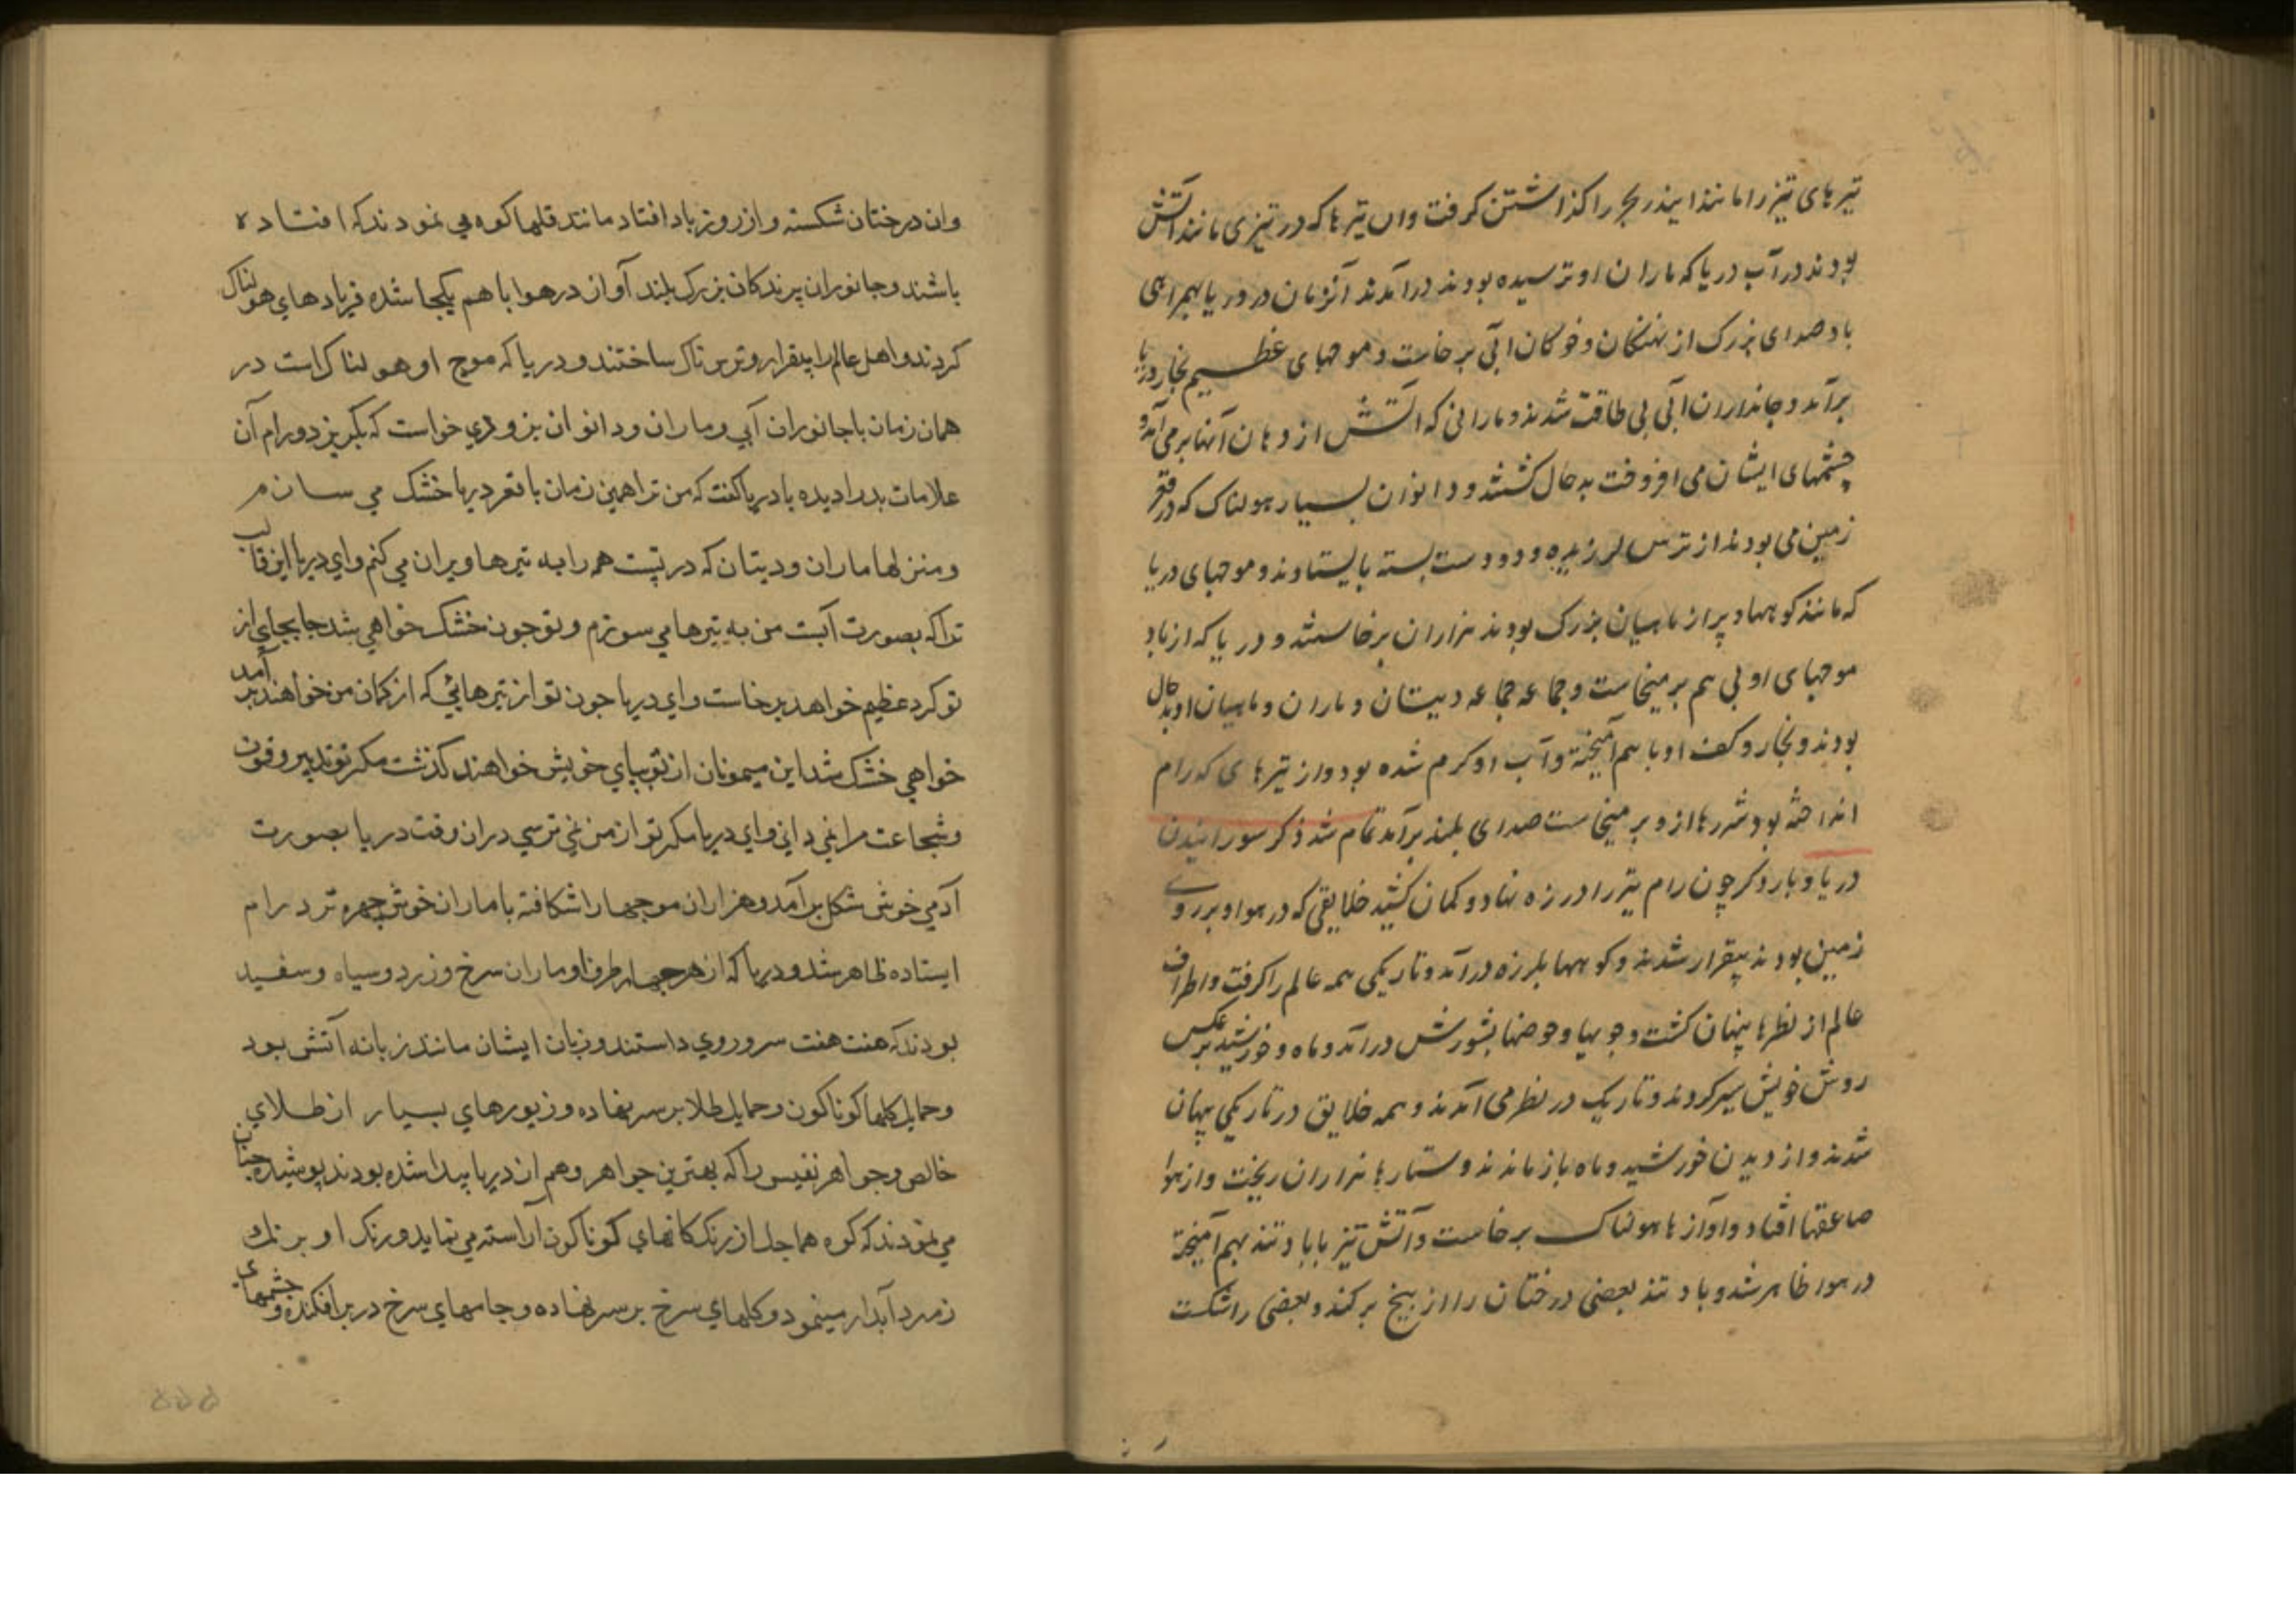 تیرهای تیز را مانند ایندر بجر را کذاشتن کرفت وان تیرها که در تیزی مانند آتش
بودند در آب دریا که ماران او ترسیده بودند درآمدند آنزمان در دریا بهمراهی
باد صدای بزرک از نهنکان و خوکان آبی برخاست و موجهای عظیم بخار دریا
برآمد و جانداران آبی بی طاقت شدند و مارانی که آتش از دهان آنها برمی آمد و
چشمهای ایشان می افروخت بدحال کشتند و دانوان بسیار هولناک که در قعر
زمین می بودند از ترس لرزیده و دو دست بسته بایستادند و موجهای دریا
که مانند کوهها و پر از ماهیان بزرک بودند هزاران برخاستند و دریا که از باد
موجهای او بی هم برمیخاست و جماعه جماعه دیتان و ماران و ماهیان او بدحال
بودند و بخار و کف او با هم آمیخته و آب او کرم شده بود و از تیرهای که رام
انداخته بود شررها ازو برمیخاست صدای بلند برآمد تمام شد ذکر سورانیدن
دریا و بار دکر چون رام تیر را در زه نهاد و کمان کشید خلایقی که در هوا و بر روی
زمین بودند بیقرار شدند و کوهها بلرزه درآمد و تاریکی همه عالم را کرفت و اطراف
عالم از نظرها پنهان کشت و جویها و حوضها بشورش درآمد و ماه و خورشید برعکس
روش خویش سیر کردند و تاریک در نظر می آمدند و همه خلایق در تاریکی پنهان
شدند و از دیدن خورشید و ماه باز ماندند و ستارها هزاران ریخت و از هوا
صاعقها افتاد و آوازها هولناک برخاست و آتش تیز با باد تند بهم آمیخته
در هوا ظاهر شد و باد تند بعضی درختان را از بیخ برکند و بعضی را شکست
وان درختان شکسته و از زور باد افتاد مانند قلها کوه می نمودند که افتاده
باشند و جانوران پرندکان بزرک بلند آواز در هوا با هم یکجا شده فریادهای هولناک
کردند و اهل عالم را بیقرار و ترس ناک ساختند و دریا که موج او هولناک است در
همان زمان با جانوران آبی و ماران و دانوان بزودی خواست که بکریزد و رام آن
علامات بد را دیده با دریا کفت که من ترا همین زمان با قعر دریا خشک می سازم
و منزلها ماران و دیتان که در تست همه را به تیرها ویران می کنم و ای دریا این قالب
ترا که بصورت آبست من به تیرها می سوزم و تو چون خشک خواهی شد جابجای از
تو کرد عظیم خواهد برخاست و ای دریا چون تو از تیرهائی که از کمان من خواهند برآمد
خواهی خشک شد این میمونان از تو بپای خویش خواهند کذشت مکر تو تدبیر و قوت
و شجاعت مرا نمی دانی و ای دریا مکر تو از من نمی ترسی دران وقت دریا بصورت
آدمی خوش شکل برآمد و هزاران موجها را شکافته با ماران خوش چهره نزد رام
ایستاده ظاهر شد و دریا که از هر چهار طرف او ماران سرخ و زرد و سیاه و سفید
بودند که هفت هفت سر و روی داستند و زبان ایشان مانند زبانه آتش بود
و حمایل کلها کوناکون و حمایل طلا بر سر نهاده و زیورهای بسیار از طلای
خالص و جواهر نفیس را که بهترین جواهر و هم از دریا پیدا شده بودند پوشیده چنان
می نمودند که کوه هماچل از رنک کانهای کوناکون آراسته می نماید و رنک او برنک
زمرد آبدار مینمود و کلهای سرخ بر سر نهاده و جامهای سرخ در بر افکنده و چشمهای